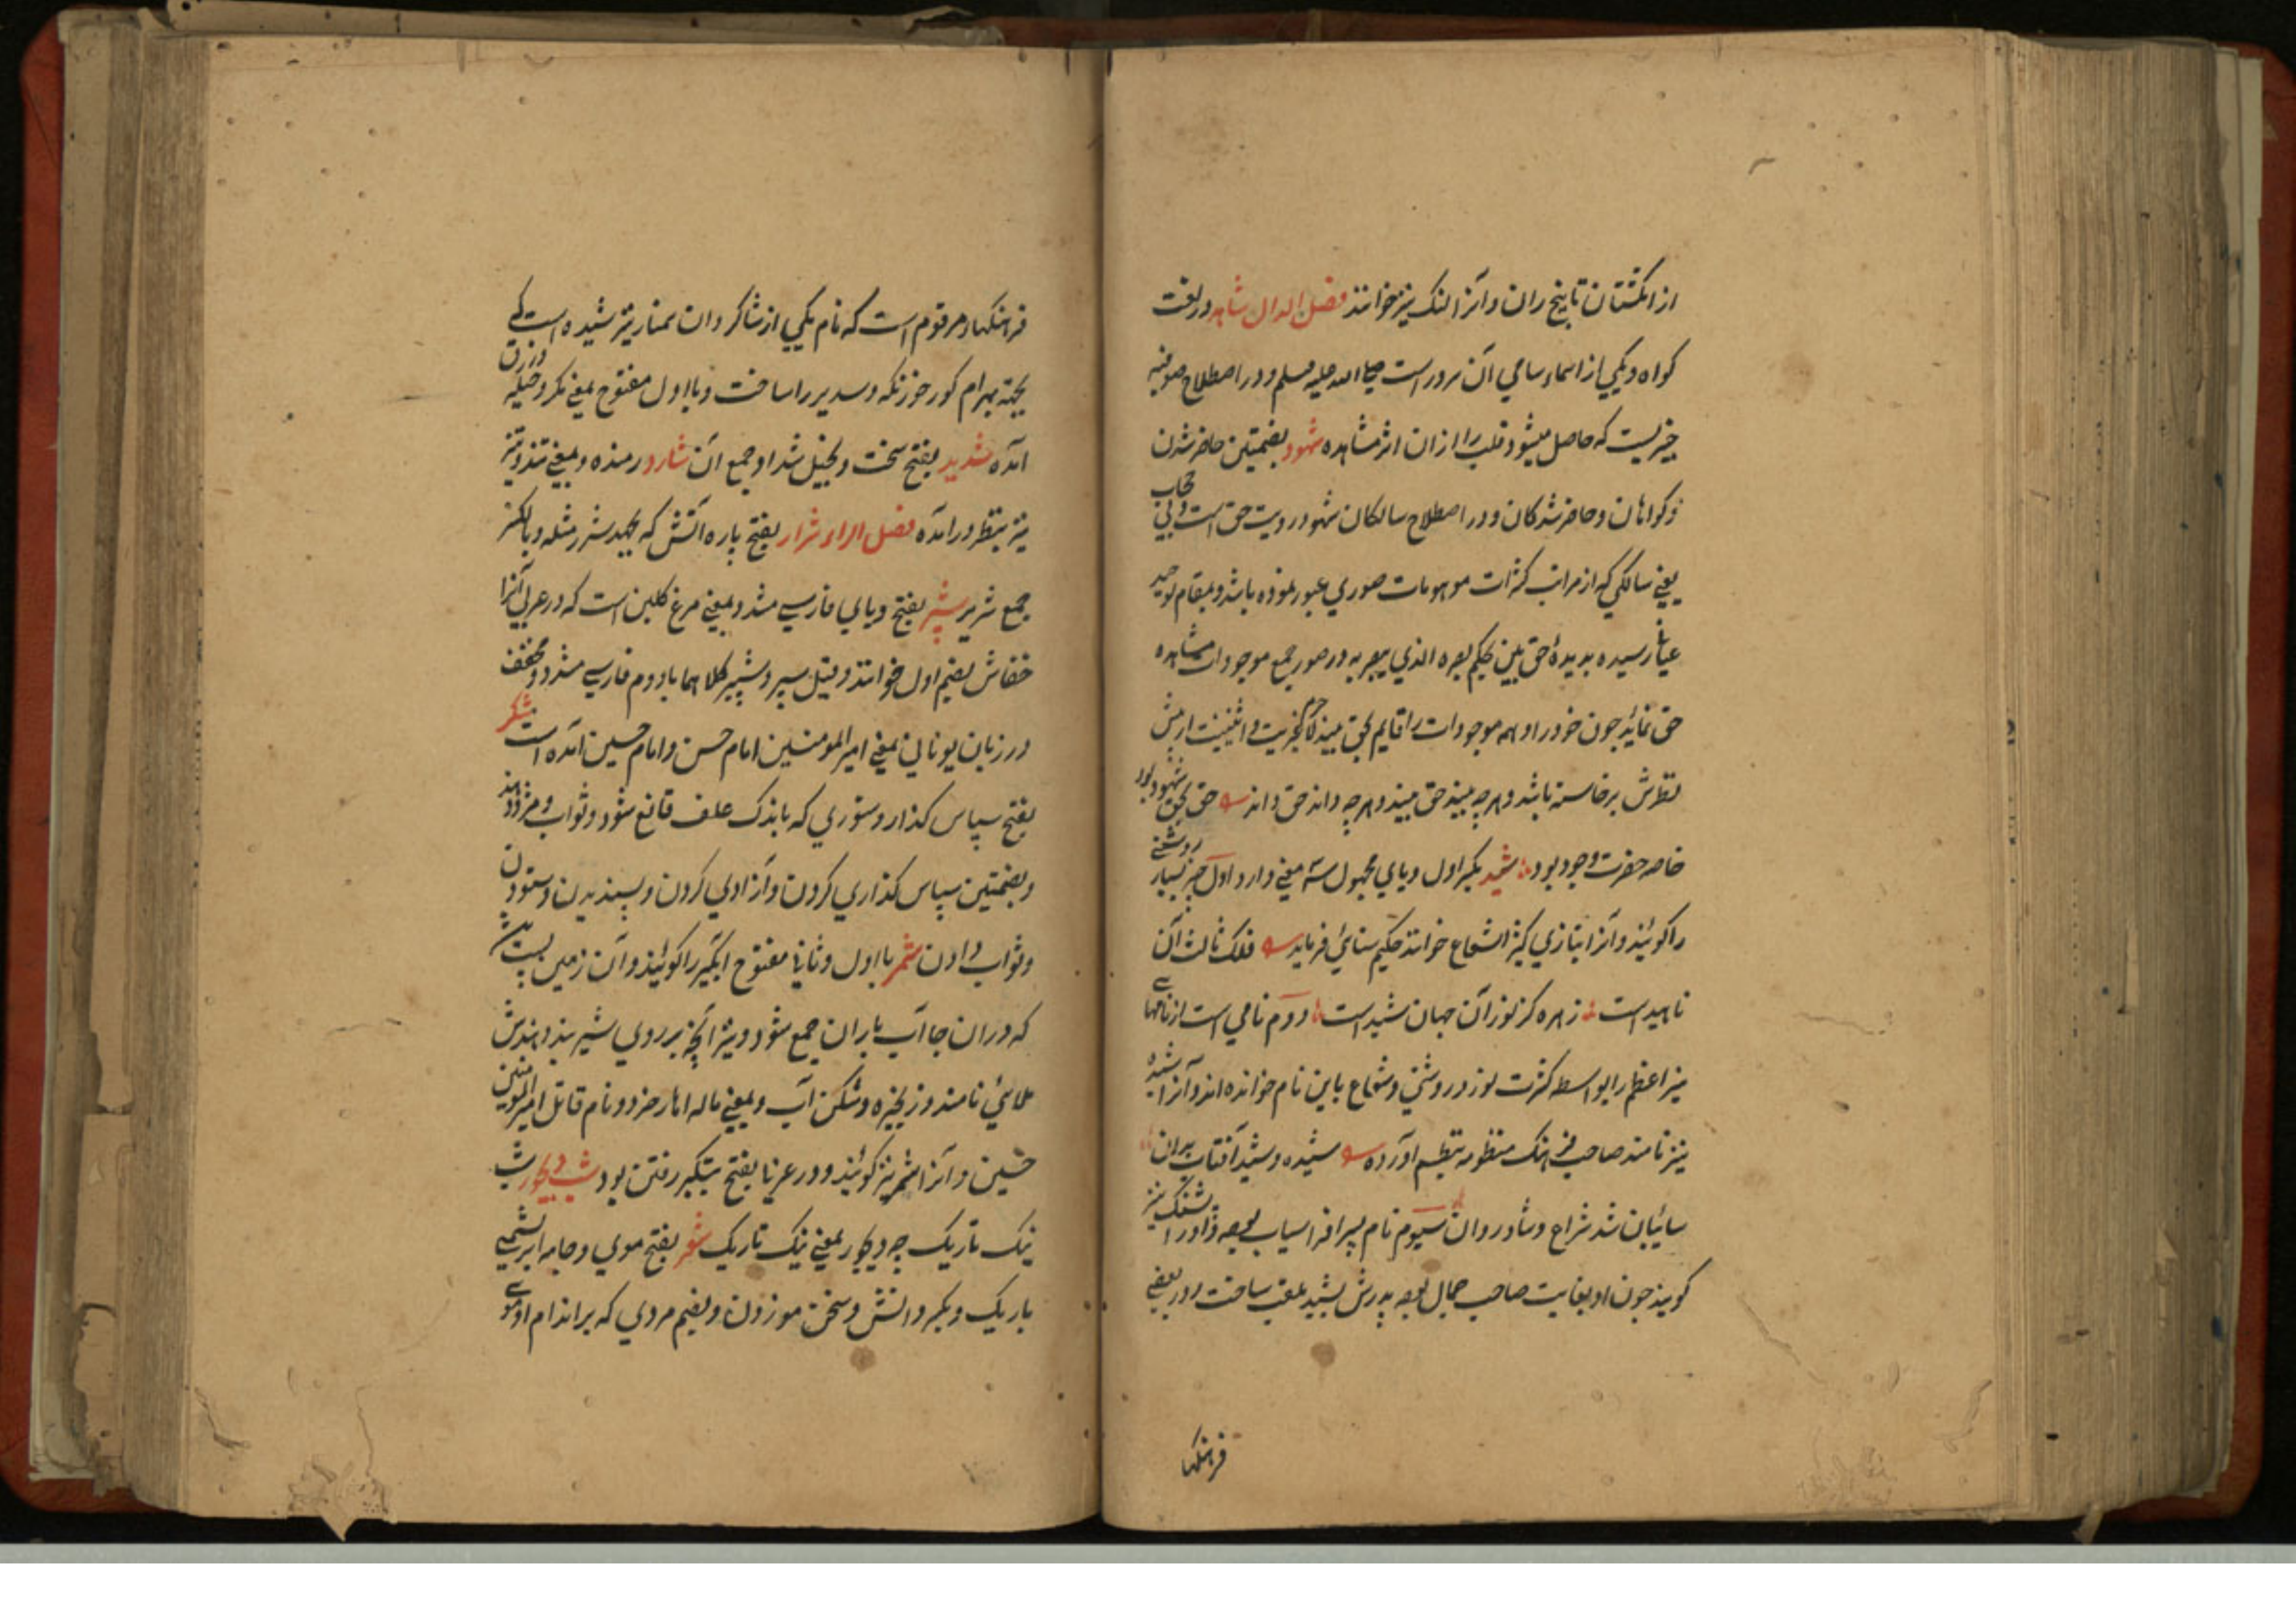 از انکشتان تا بیخ ران و آنرا لنک نیز خوانند فصل الدال شاهد در لغت
کواه و یکی از اسماء سامی آن سرور است صلی الله علیه وسلم و در اصطلاح صوفیه
چیزیست که حاصل میشود قلب را از ان اثر مشاهده شهود بضمتین حاضر شدن
و کواهان و حاضر شدکان و در اصطلاح سالکان شهود رویت حق است بی حجاب
یعنی سالکی که از مراتب کثرات موهومات صوری عبور نموده باشد و بمقام توحید
عیانی رسیده بدیدهٔ حق بین بحکم بصره الذی یبصر به در صور جمیع موجودات مشاهده
حق نماید چون خود را و همه موجودات را قایم بحق بیند لاجرم غیریت و اثنینیت از پیش
نظرش برخاسته باشد و هر چه بیند حق بیند و هر چه داند حق داند حق بحق شهود بود
خاصه حضرت وجود بود شید بکسر اول و یای مجهول سه معنی دارد اول چیز بسیار روشنی
را کویند و آنرا بتازی کثیر الشعاع خوانند حکیم سنائی فرماید فلک ثالث آن
ناهید است زهره کز نور آن جهان شید است دوم نامی است از نامهای
نیر اعظم را بواسطه کثرت نور و روشنی و شعاع باین نام خوانده اند و آنرا شیده
نیز نامند صاحب فرهنک منظومه بنظم آورده شیده و شید آفتاب بدان
سائبان شد شراع و شادروان سیوم نام پسر افراسیاب بوده و او را پشنک نیز
کویند چون او بغایت صاحب جمال بوده پدرش بشید ملقب ساخت و در بعضی
فرهنکها
فرهنکها مرقوم است که نام یکی از شاکردان سمنار نیز شیده است که
بجهة بهرام کور خورنکه و سدیر را ساخت و با اول مفتوح بمعنی مکر و حیله و زرق
آمده شدید بفتح سخت و بخیل شداد جمع آن شارد رمنده و بمعنی تند و تیز
نیز بنظر در آمده فصل الراء شرار بفتح پاره آتش که بجهد شرر مثله و بالکسر
جمع شریر شپر بفتح و بای فارسی مشدد بمعنی مرغ کلین است که در عربی آنرا
خفاش بضم اول خوانند و قیل سپر و شپیر کلاهما با دوم فارسی مشدد و مخفف
در زبان یونانی بمعنی امیر المومنین امام حسن و امام حسین آمده است شکر
بفتح سپاس کذار و ستوری که باندک علف قانع شود و ثواب و مزد دهند
و بضمتین سپاس کذاری کردن و آزادی کردن و پسندیدن و ستودن
و ثواب دادن شمر با اول و ثانی مفتوح آبکیر را کویند و آن زمین پست است
که در ان جا آب باران جمع شود و نیز آنچه بر روی شیر بندد هندش
ملائی نامند و زنجیره و شکن آب و بمعنی ناله اهار خرد و نام قاتل امیر المومنین
حسین و آنرا شمر نیز کویند و در عربی بفتح بتکبر رفتن بود شب دیجور شب
نیک تاریک چه دیجور بمعنی نیک تاریک شعر بفتح موی و جامه ابریشمی
باریک و بکسر دانش و سخن موزون و بضم مردی که بر اندام او موی